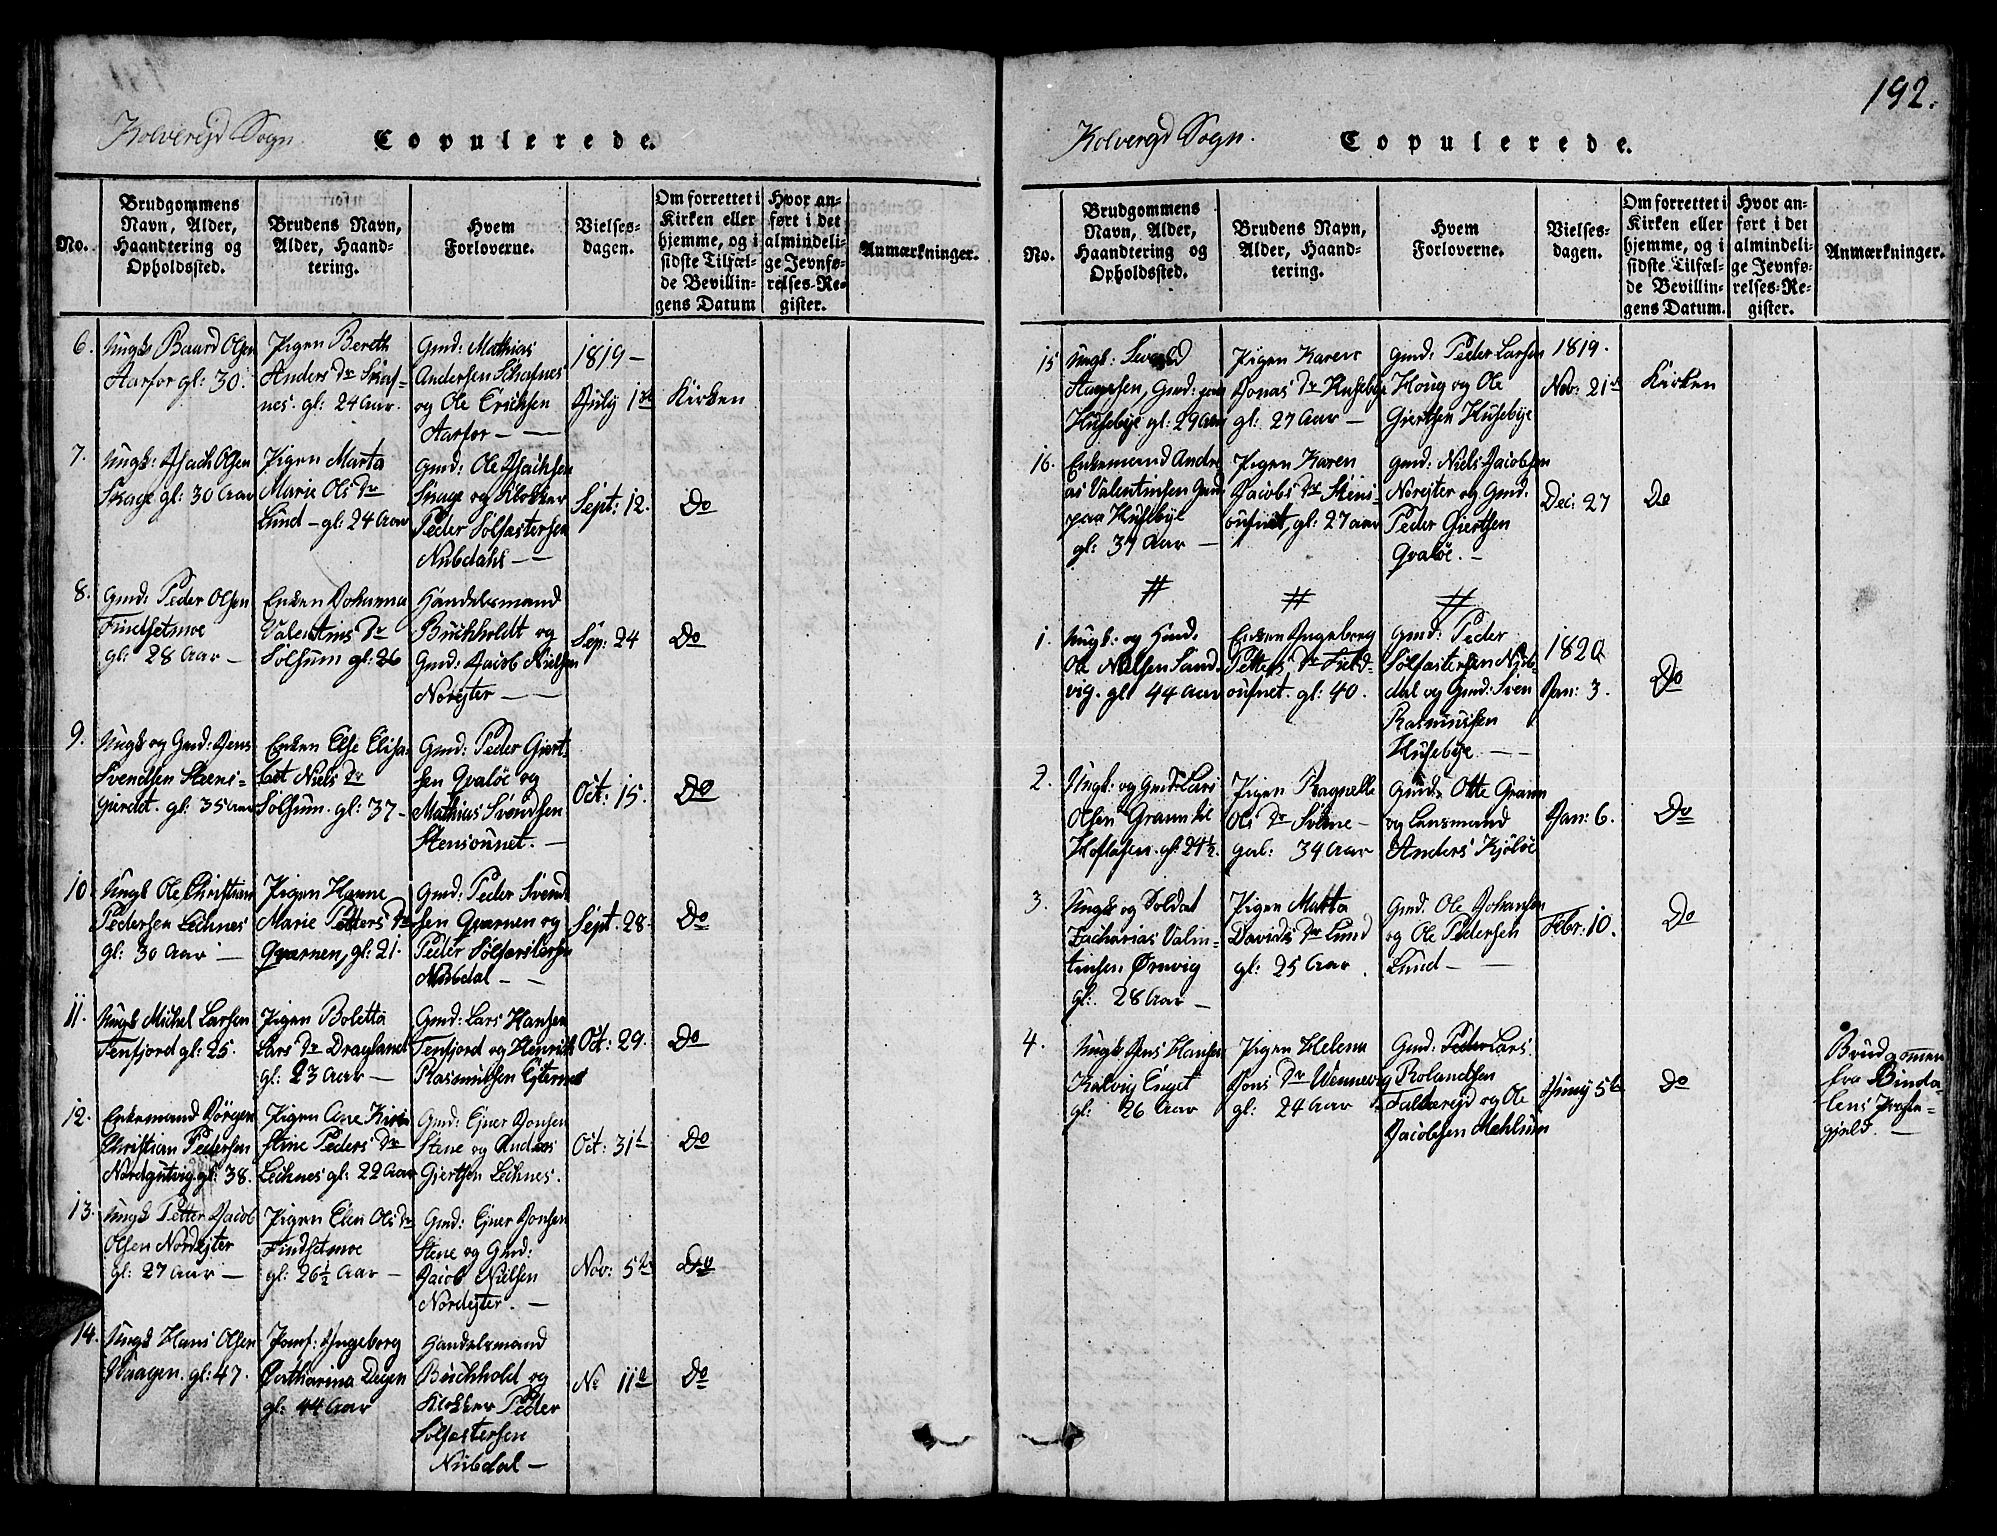 192.
Kolvereyd Sogn.
Copulerede.
No.
Brudgommens
Navn, Alder,
Haandtering og
Opholdssted.
Brudens Navn,
Alder, Haand-
tering.
Hvem
Forloverne.
Vielses-
dagen.
Om forrettet i
Kirken eller
hjemme, og i
sidste Tilfæl-
de Bevillin-
gens Datum
Hvor an-
ført i det
almindeli-
ge Jevnfø-
relses-Re-
gister.
Anmærkninger.
6.
Ungk: Baard Olsen
Aarfor gl: 30.
Pigen Bereth
Anders Dr Skaf-
nes. gl: 24 Aar.
Gmd: Mathias
Andersen Skafnes
og Ole Erichsen
Aarfor —
1819 —
July 1ste
Kirken
7.
Ungk: Isach Olsen
Skage gl: 30 Aar
Pigen Marta
Marie Ols Dr
Lund — gl: 24 Aar
Gmd: Ole Isachsen
Skage og Klokker
Peder Solfastersen
Nubdahl —
Sept: 12.
Do
8.
Gmd: Peder Olsen
Findsetmoe
gl: 28 Aar —
Enken Johanna
Valentins Dr
Solsum gl: 26
Handelsmand
Buchholdt og
Gmd: Jacob Nielsen
Norejter —
Sep: 24
Do
9.
Ungk og Gmd: Jens
Svendsen Steens-
gierdet. gl: 35 Aar
Enken Else Elisa-
bet Niels Dr
Solsum. gl: 37 —
Gmd: Peder Giert-
sen Qvaløe og
Mathias Svendsen
Stensounet. —
Oct: 15.
Do
10.
Ungk Ole Christian
Pedersen Lechnes
gl: 30 Aar —
Pigen Hanne
Marie Petters Dr
Qvarnen, gl: 21.
Gmd: Peder Svend-
sen Qvarnen og
Peder Solfastersen
Nubdal —
Sept. 28.
Do
11.
Ungk Michel Larsen
Tenfjord gl: 25.
Pigen Boletta
Lars Dr Drayland
gl: 23 Aar —
Gmd: Lars Hansen
Tenfjord og Henrich
Rasmussen Eiternes
Oct: 29.
Do
12.
Enkemand Jørgen
Christian Pedersen
Nordgutvig gl: 38.
Pigen Ane Kir-
stine Peders Dr
Lechnes gl: 22 Aar
Gmd: Ejner Jonsen
Stene og Andreas
Giertsen Lechnes.
Oct: 31t
Do
13.
Ungk Petter Jacob
Olsen Nordejter
gl: 27 Aar —
Pigen Elen Ols Dr
Findsetmoe
gl: 26½ Aar —
Gmd: Ejner Jonsen
Stene og Gmd:
Jacob Nielsen
Nordejter. —
Nov: 5te
Do
14.
Ungk Hans Olsen
Waagen. gl: 47.
Jomf: Ingeborg
Catharina Degen
gl: 44 Aar
Handelsmand
Buchhold og
Klokker Peder
Solfastersen
Nubdal —
No 11te
Do
Kolvergd Sogn.
Copulerede.
No.
Brudgommens
Navn, Alder,
Haandtering og
Opholdssted.
Brudens Navn,
Alder, Haand-
tering.
Hvem
Forloverne.
Vielses-
dagen.
Om forrettet i
Kirken eller
hjemme, og i
sidste Tilfæl-
de Bevillin-
gens Datum.
Hvor an-
ført i det
almindeli-
ge Jevnfø-
relses-Re-
gister.
Anmærkninger.
15
Ungk: Sevald
Gmd: paa
Husebye gl: 29 Aar
Pigen Karen
Jonas Dr Husebye
gl: 27 Aar —
Gmd: Peder Larsen
Houg og Ole
Giertsen Husebye
1819.
Nov: 21de
Kirken
16.
Enkemand Andre
as Valentinsen Gmd
paa Husebye
gl: 37 Aar —
Pigen Karen
Jacobs Dr Stens-
oufnet, gl: 27 aar
Gmd: Niels Jacobsen
Norejter og Gmd.
Peder Giertsen
Qvaløe. —
Dec: 27
Do
#
#
#
1.
Ungk: og Gmd.
Ole Nielsen Sand-
vig. gl 44 Aar
Enken Ingeborg
Petters Dr Field-
oufnet. gl: 40.
Gmd: Peder
Solfastersen Nub-
dal og Gmd: Sven
Rasmussen
Husebye —
1820
Jan: 3.
Do
2.
Ungk: og Gmd: Lars
Olsen Grann til
Hoflasen. gl: 24½.
Pigen Ragnelle
Ols Dr Svine-
gal: 34 Aar
Gmd: Otte Grann
og Lensmand
Anders Kjøløe
Jan: 6.
Do
3.
Ungk og Soldat
Zacharias Valin-
tinsen Ørnvig
gl: 28 Aar —
Pigen Matta
Davids Dr Lund
gl: 25 Aar.
Gmd. Ole Johansen
og Ole Pedersen
Lund —
Febr: 10.
Do
4.
Ungk Jens Hansen
Kalvig Enget
gl: 26 Aar
Pigen Helena
Jons Dr Wennevig
gl: 24 Aar
Gmd: Peder Lars.
Rolandsen
Fallereyd og Ole
Jacobsen Mehlum
Juny 5te
Do
Brudgommen
fra Binda-
lens Præste-
gjeld. —